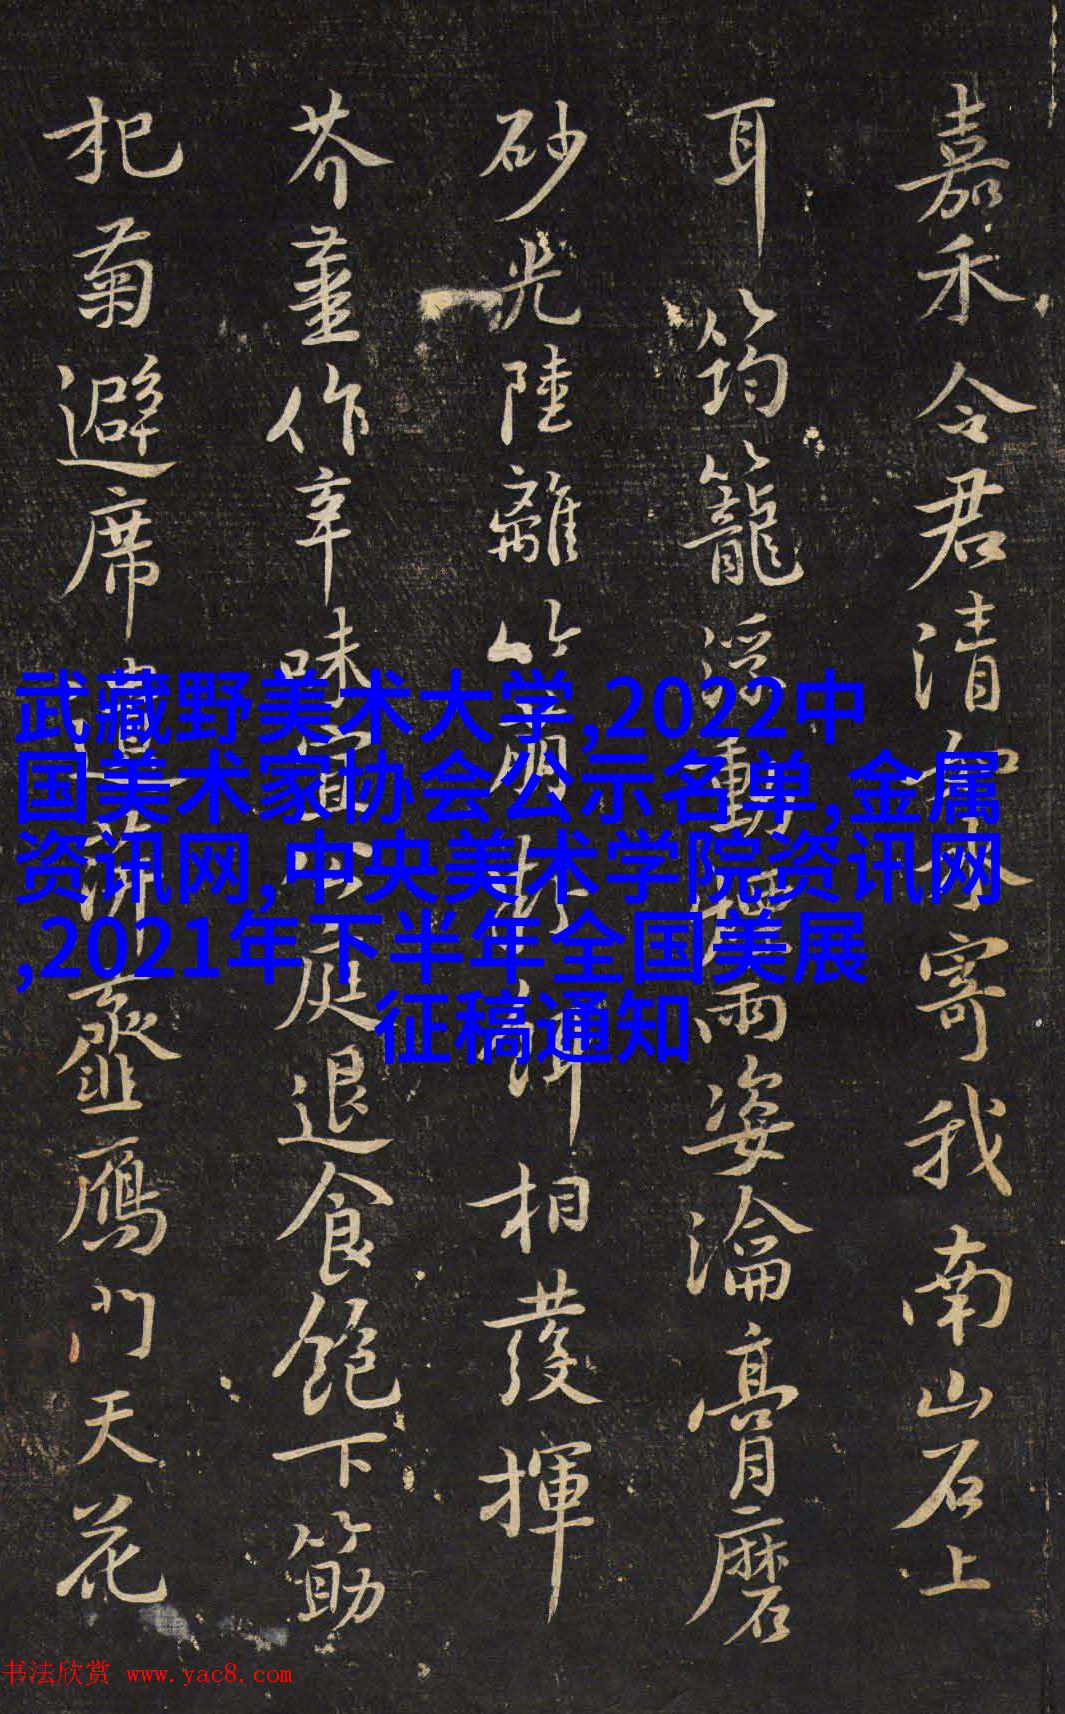 嘉禾令君清如寄我南山石上
耳筠籠浮動雨姿瀹膏磨
砂光陸離竹萌餌相發揮
芥薑作辛味宜公庭退食飽下筯
杞菊避席遺萍虀鴈門天花
武藏野美术大学,2022中
国美术家协会公示名单,金属
资讯网,中央美术学院资讯网
,2021年下半年全国美展
征稿通知
书法欣赏 www.yac8.com